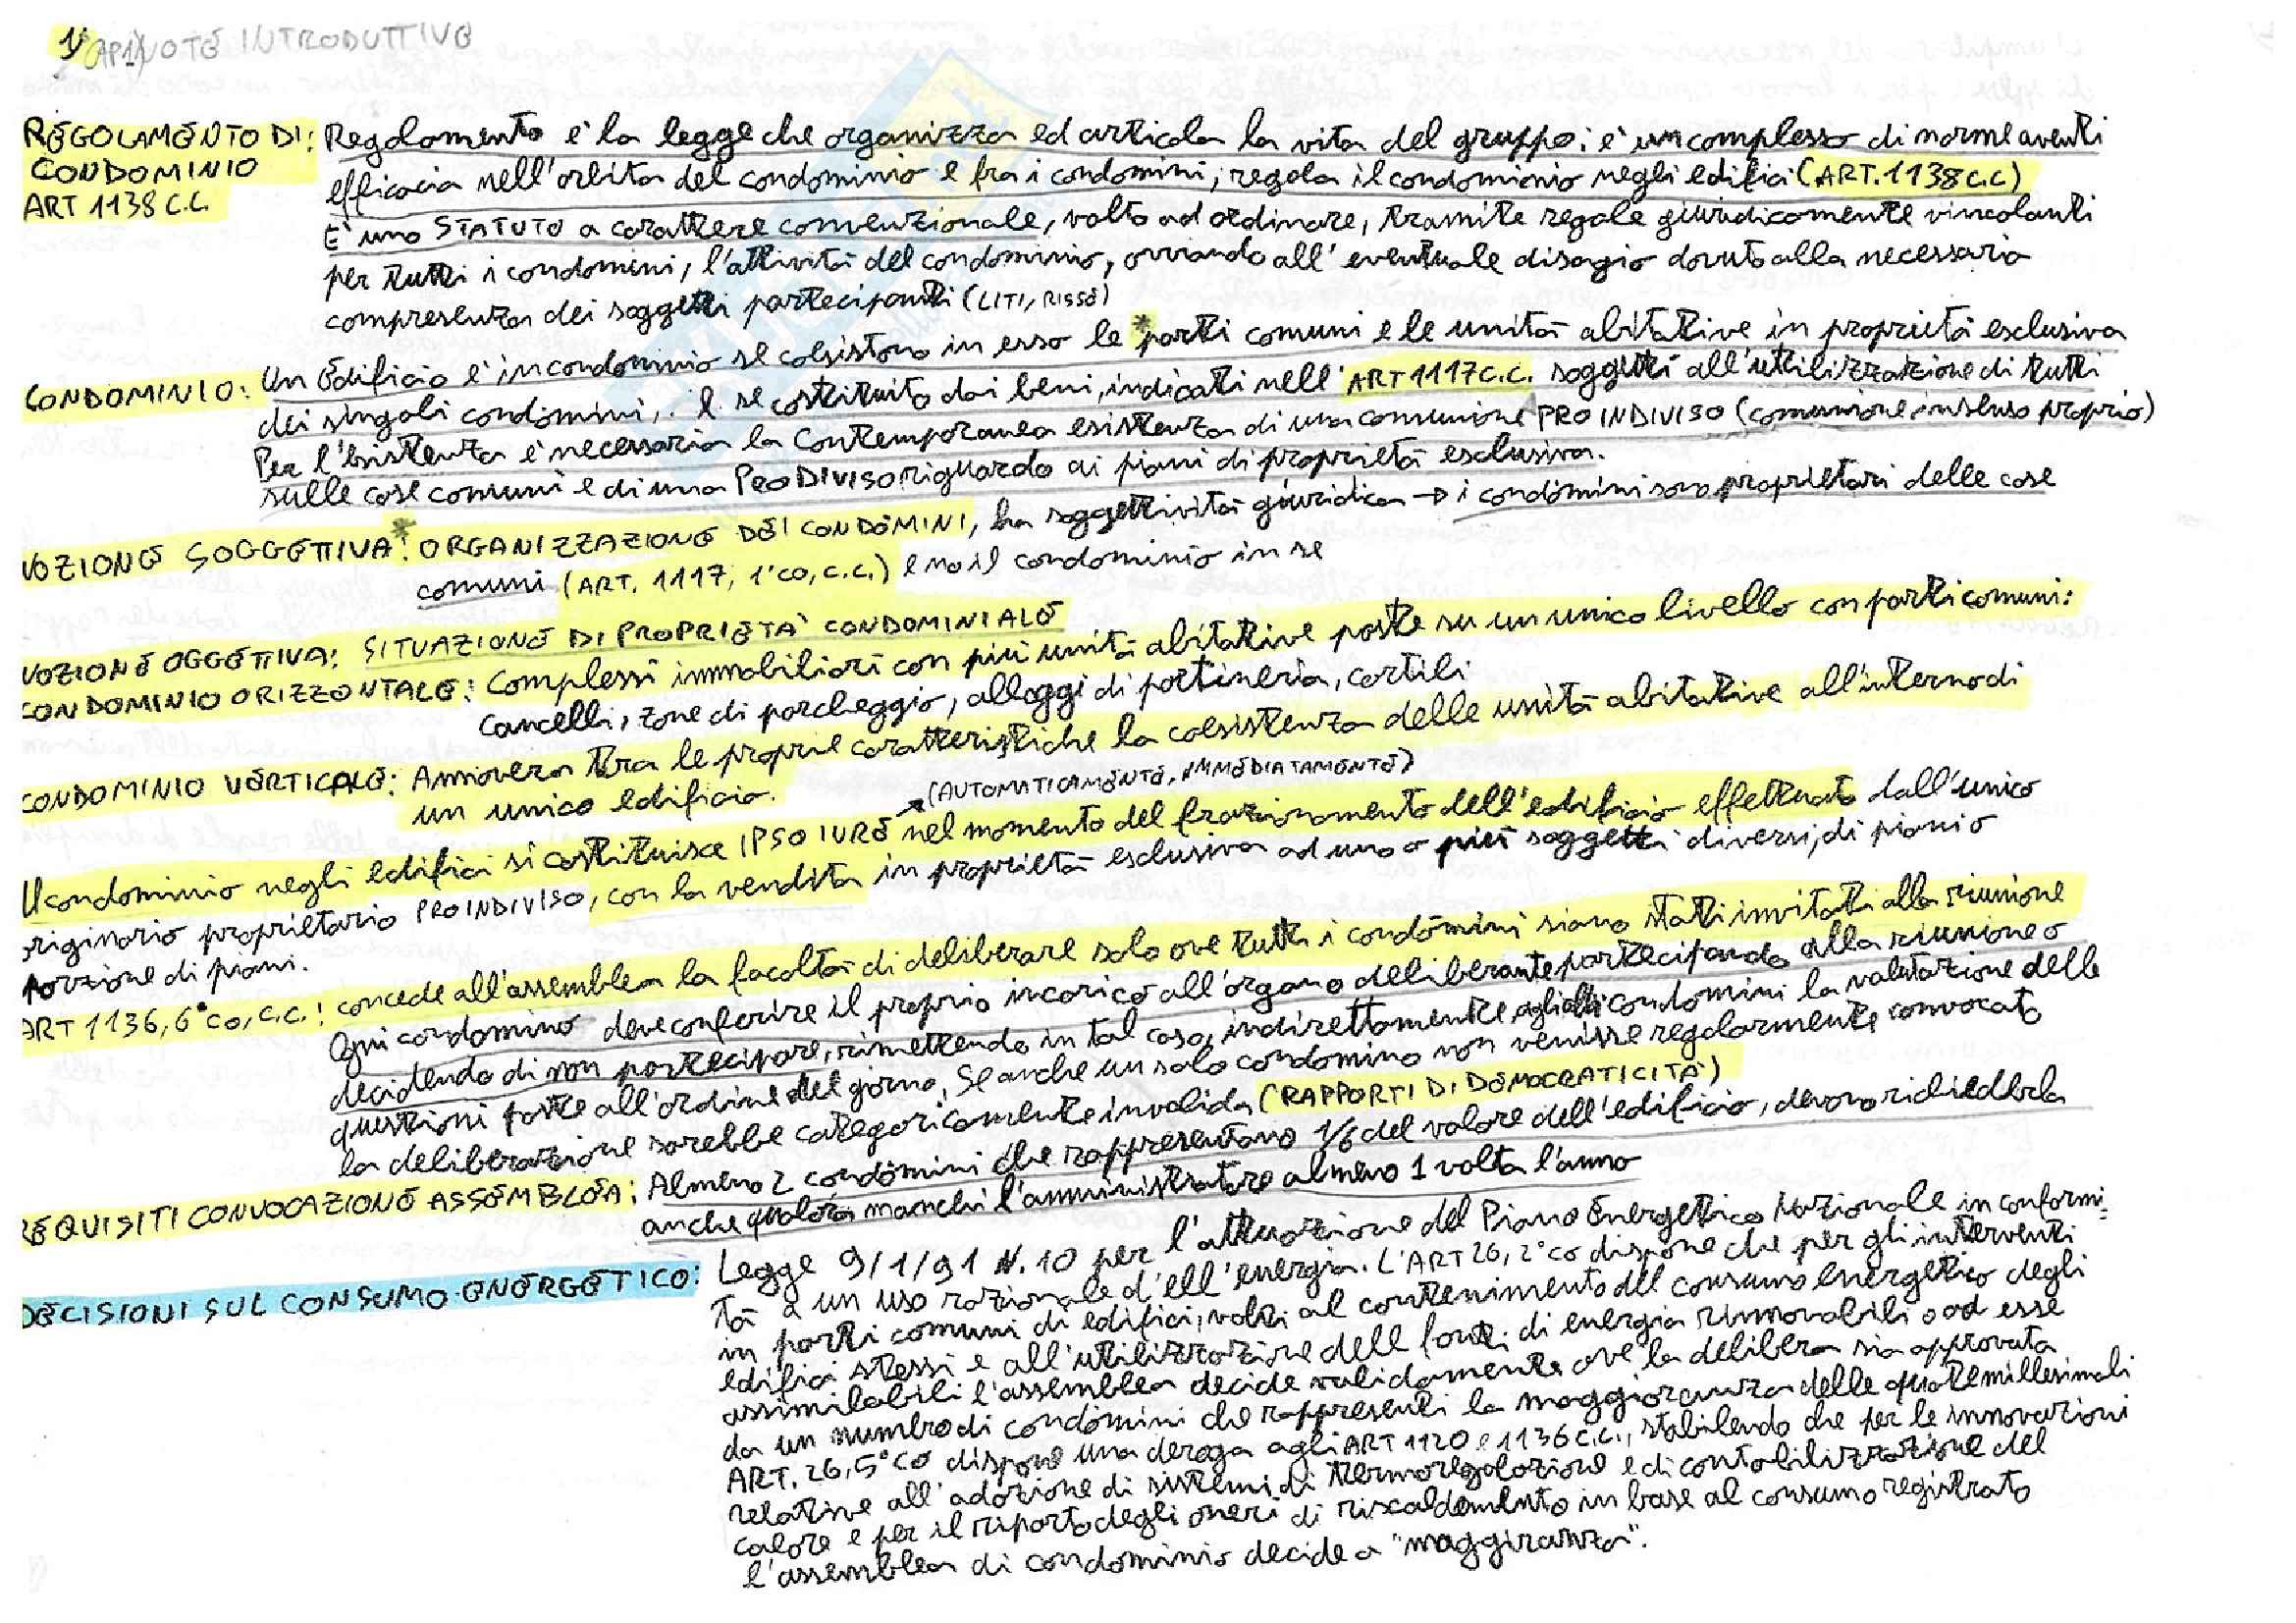 1) CAP1) NOTE INTRODUTTIVE
REGOLAMENTO DI: Regolamento è la legge che organizza ed articola la vita del gruppo: è un complesso di norme aventi
CONDOMINIO efficacia nell'orbita del condominio e fra i condomini, regola il condominio negli edifici (ART. 1138 C.C)
ART 1138 C.C. È uno STATUTO a carattere convenzionale, volto ad ordinare, tramite regole giuridicamente vincolanti
per tutti i condomini, l'attività del condominio, ovviando all'eventuale disagio dovuto alla necessaria
compresenza dei soggetti partecipanti (LITI, RISSE)
CONDOMINIO: Un Edificio è in condominio se coesistono in esso le *parti comuni e le unità abitative in proprietà esclusiva
dei singoli condòmini, se costituito dai beni, indicati nell'ART 1117 C.C. soggetti all'utilizzazione di tutti
Per l'esistenza è necessaria la Contemporanea esistenza di una comunione PRO INDIVISO (comunione in senso proprio)
sulle cose comuni e di una PRO DIVISO riguardo ai piani di proprietà esclusiva.
NOZIONE SOGGETTIVA*: ORGANIZZAZIONE DEI CONDÒMINI, ha soggettività giuridica → i condòmini sono proprietari delle cose
comuni (ART. 1117, 1°CO, C.C.) e no il condominio in se
NOZIONE OGGETTIVA: SITUAZIONE DI PROPRIETA' CONDOMINIALE
CONDOMINIO ORIZZONTALE: Complessi immobiliari con più unità abitative poste su un unico livello con parti comuni:
Cancelli, zone di parcheggio, alloggi di portineria, cortili
CONDOMINIO VERTICALE: Annovera tra le proprie caratteristiche la coesistenza delle unità abitative all'interno di
un unico edificio.
(AUTOMATICAMENTE, IMMEDIATAMENTE)
Il condominio negli edifici si costituisce IPSO IURE nel momento del frazionamento dell'edificio effettuato dall'unico
originario proprietario PRO INDIVISO, con la vendita in proprietà esclusiva ad uno o più soggetti diversi, di piani o
porzione di piani.
ART 1136, 6°co, C.C.: concede all'assemblea la facoltà di deliberare solo ove tutti i condòmini siano stati invitati alla riunione
Ogni condomino deve conferire il proprio incarico all'organo deliberante partecipando alla riunione o
decidendo di non partecipare, rimettendo in tal caso, indirettamente, agli altri condomini la valutazione delle
questioni poste all'ordine del giorno, Se anche un solo condomino non venisse regolarmente convocato
la deliberazione sarebbe categoricamente invalida (RAPPORTI DI DEMOCRATICITÀ)
REQUISITI CONVOCAZIONE ASSEMBLEA: Almeno 2 condòmini che rappresentano 1/6 del valore dell'edificio, devono richiederla
anche qualora manchi l'amministratore almeno 1 volta l'anno
DECISIONI SUL CONSUMO ENERGETICO: Legge 9/1/91 N. 10 per l'attuazione del Piano Energetico Nazionale in conformi-
tà a un uso razionale d'ell'energia. L'ART 26, 2°co dispone che per gli interventi
in parti comuni di edifici, volti al contenimento del consumo energetico degli
edifici stessi e all'utilizzazione dell fonti di energia rinnovabili o ad esse
assimilabili l'assemblea decide validamente ove la delibera sia approvata
da un numero di condòmini che rappresenti la maggioranza delle quote millesimali
ART. 26, 5°co dispone una deroga agli ART 1120 e 1136 C.C., stabilendo che per le innovazioni
relative all'adozione di sistemi di termoregolazione e di contabilizzazione del
calore e per il riparto degli oneri di riscaldamento in base al consumo registrato
l'assemblea di condominio decide a "maggiranza".